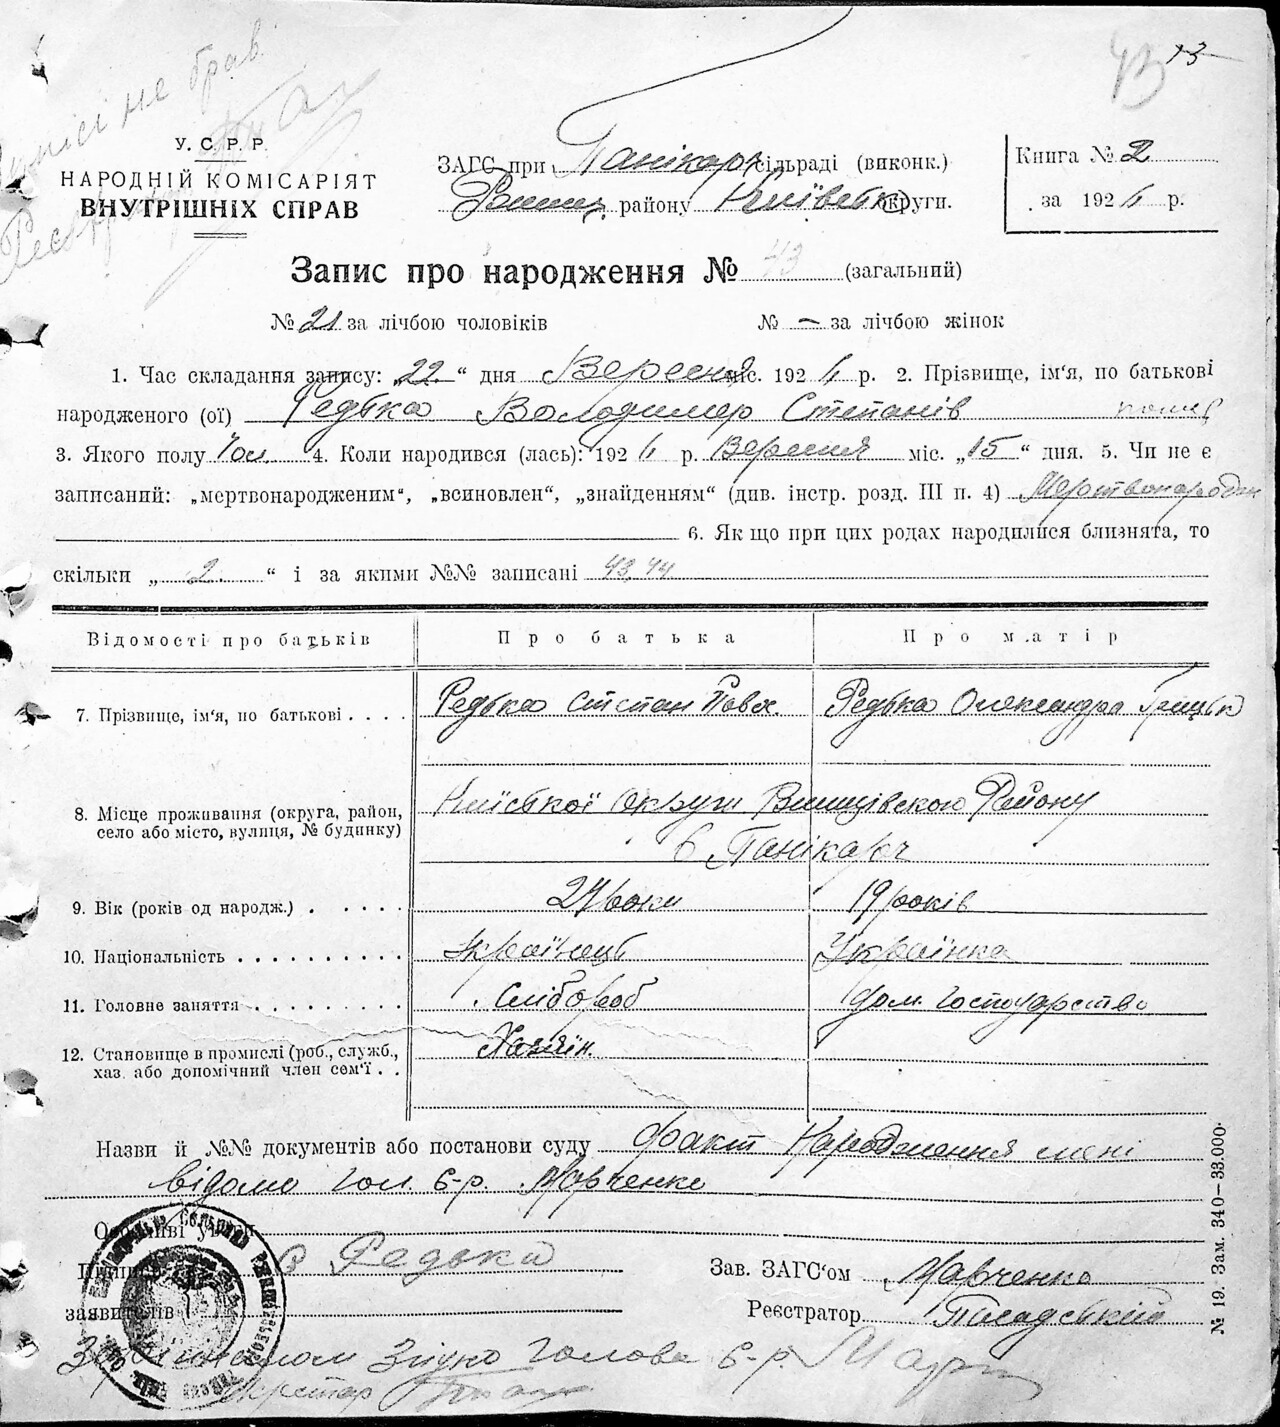 не брав
43 13
У. С. Р. Р.
НАРОДНІЙ КОМІСАРІЯТ
ВНУТРІШНІХ СПРАВ
ЗАГС при Панікар сільраді (виконк.)
району Київськ округи.
Книга № 2
за 192 р.
Запис про народження № 43 (загальний)
№ 21 за лічбою чоловіків № — за лічбою жінок
1. Час складання запису: „22“ дня Вересня міс. 192 р. 2. Прізвище, ім'я, по батькові
народженого (ої) Редька Володимер Степанів
3. Якого полу Чол 4. Коли народився (лась): 192 р. Вересня міс. „15“ дня. 5. Чи не є
записаний: „мертвонародженим“, „всиновлен“, „знайденням“ (див. інстр. розд. III п. 4) Мертвонародж
6. Як що при цих родах народилися близнята, то
скільки „ 2 “ і за якими №№ записані 43,44
Відомості про батьків Про батька Про матір
7. Прізвище, ім'я, по батькові . . . . Редька Степан Павл. Редька Олександра Грицьк
8. Місце проживання (округа, район, село або місто, вулиця, № будинку) Київської округи Району
с Панікарч
9. Вік (років од народж.) . . . . . 24 роки 19 років
10. Національність . . . . . . . . . . Українець Українка
11. Головне заняття . . . . . . . . Хлібороб дом. господарство
12. Становище в промислі (роб., служб., хаз. або допомічний член сем'ї . . Хазяїн.
Назви й №№ документів або постанови суду факт Народження мені
відомо гол. с-р. Марченко
Особливі уваги
Підписи Редька
Зав. ЗАГС'ом Марченко
заявителів
Реєстратор Посадський
З оригіналом згідно Голова с-р. Марч
Секретар
№ 19. Зам. 340—33.000.